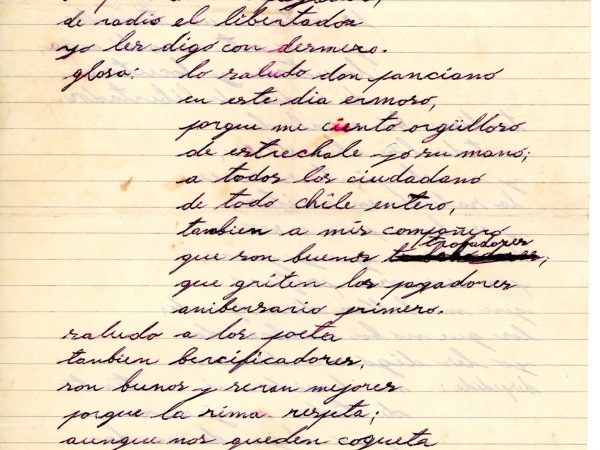 de radio el libertador
yo les digo con dermero.
glosa: lo saludo don ponciano
en este dia ermoso,
porque me ciento orgülloso
de estrechale yo su mano;
a todos los ciudadano
de todo chile entero,
tanbien a mis compañero
que son buenos trobadores;
que griten los pagadores
anibersario primero.
saludo a los poeta
tanbien bercificadores,
son bunos y seran mejores
porque la rima respeta;
aunque nos queden coqueta